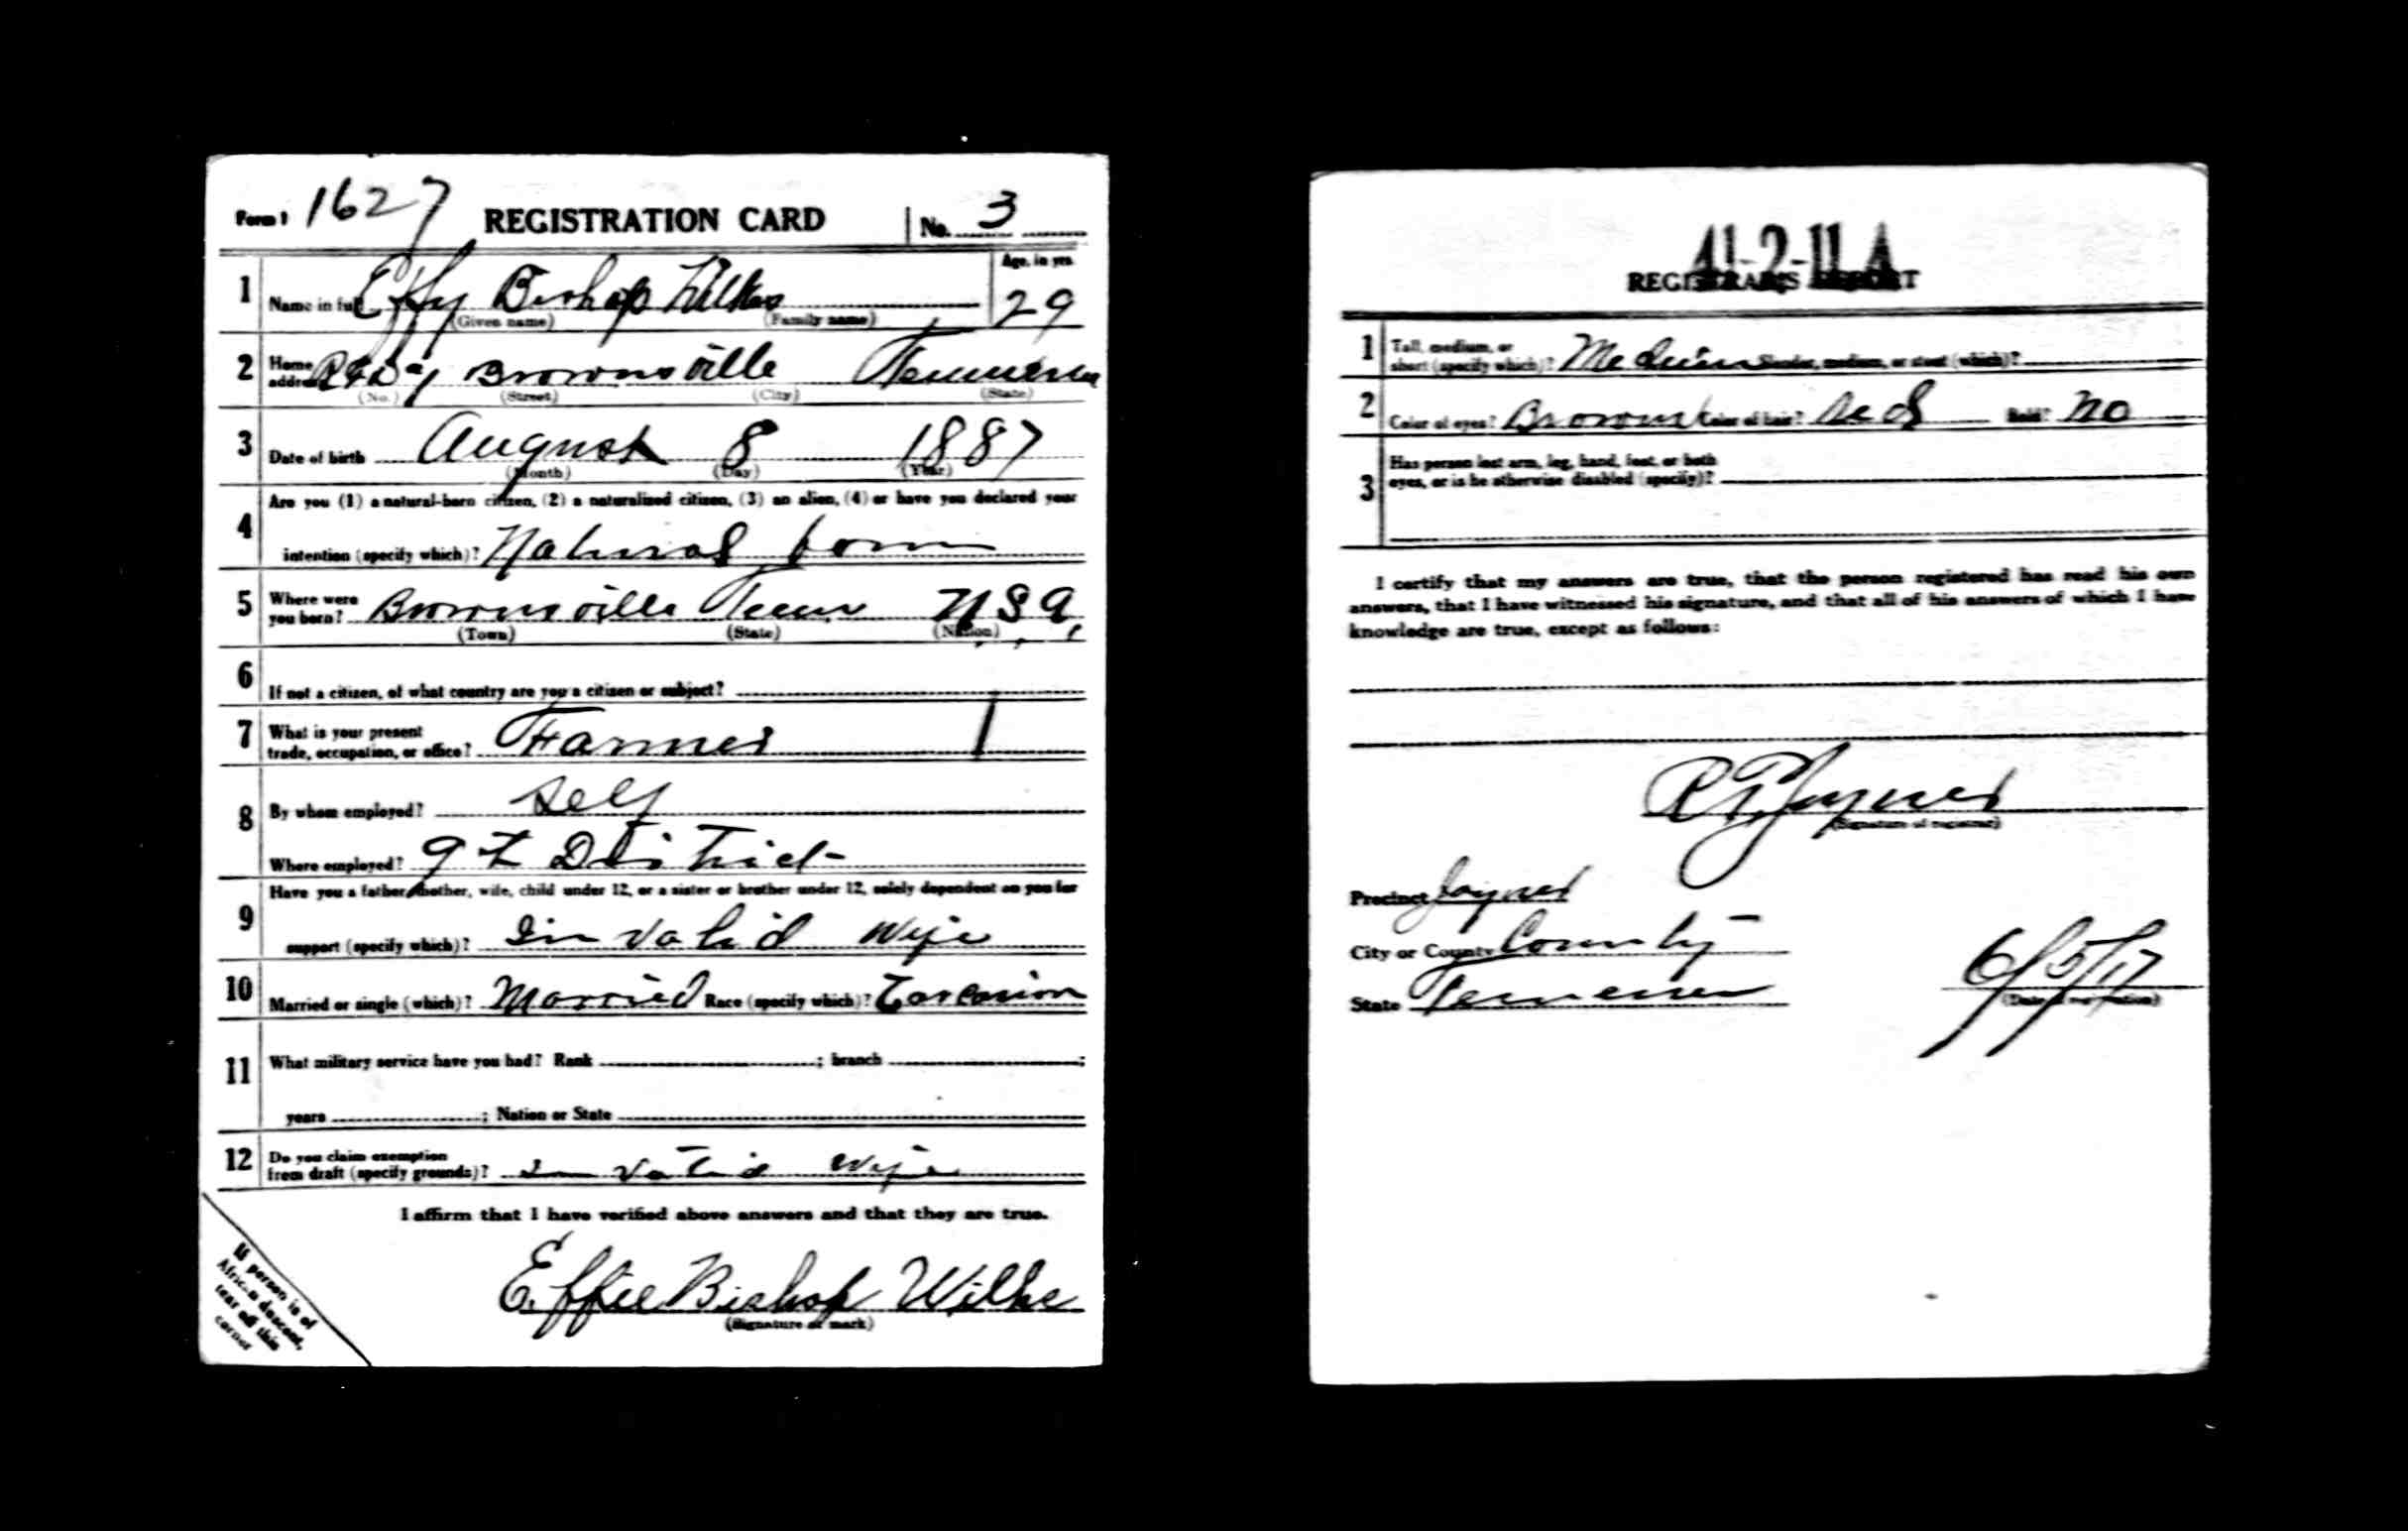 Form 1 1627 REGISTRATION CARD No. 3
1 Name in full Effy Bishop Wilkes Age, in yrs. 29
(Given name) (Family name)
2 Home address Brownsville Tennessee
(No.) (Street) (City) (State)
3 Date of birth August 8 1887
(Month) (Day) (Year)
4 Are you (1) a natural-born citizen, (2) a naturalized citizen, (3) an alien, (4) or have you declared your
intention (specify which)? Natural born
5 Where were you born? Brownsville Tenn U.S.A.
(Town) (State) (Nation)
6 If not a citizen, of what country are you a citizen or subject?
7 What is your present trade, occupation, or office? Farmer 1
8 By whom employed? Self
Where employed? 9th District
9 Have you a father, mother, wife, child under 12, or a sister or brother under 12, solely dependent on you for
support (specify which)? Invalid wife
10 Married or single (which)? Married Race (specify which)?
11 What military service have you had? Rank ; branch ;
years ; Nation or State
12 Do you claim exemption from draft (specify grounds)? Invalid wife
I affirm that I have verified above answers and that they are true.
Effie Bishop Wilks
(Signature or mark)
If person is of
African descent,
tear off this
corner
41-2-11 A
REGISTRAR'S REPORT
1 Tall, medium, or short (specify which)? Medium Slender, medium, or stout (which)?
2 Color of eyes? Brown Color of hair? Red Bald? No
3 Has person lost arm, leg, hand, foot, or both
eyes, or is he otherwise disabled (specify)?
I certify that my answers are true, that the person registered has read his own
answers, that I have witnessed his signature, and that all of his answers of which I have
knowledge are true, except as follows:
Joyner
(Signature of registrar)
Precinct Joyner
City or County County
State Tennessee 6/5/17
(Date of registration)